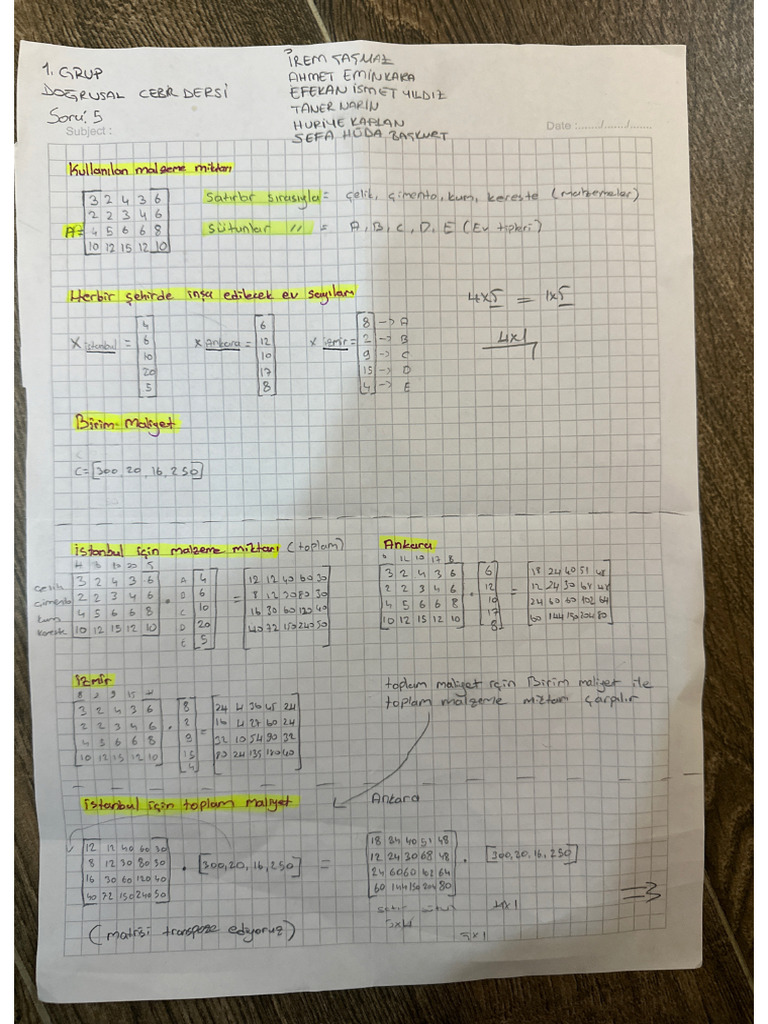 1. GRUP
DOĞRUSAL CEBİR DERSİ
Soru: 5
Subject :
İREM TAŞMAZ
AHMET EMİN KARA
EFEKAN İSMET YILDIZ
TANER NARİN
HURİYE KAPLAN
SEFA HÜDA BAŞKURT
Date :......./......./.......
Kullanılan malzeme miktarı
3 2 4 3 6
2 2 3 4 6
A= 4 5 6 6 8
10 12 15 12 10
Satırlar sırasıyla = çelik, çimento, kum, kereste (malzemeler)
Sütunlar " = A, B, C, D, E (Ev tipleri)
Herbir şehirde inşa edilecek ev sayıları
4x5 = 1x5
4x1
X istanbul =
4
6
10
20
5
X Ankara =
6
12
10
17
8
X izmir =
8 -> A
2 -> B
9 -> C
15 -> D
4 -> E
Birim Maliyet
C=[300, 20, 16, 250]
istanbul için malzeme miktarı (toplam)
20 5
çelik 3 2 4 3 6 A 4 12 12 40 60 30
çimento 2 2 3 4 6 . 6 = 8 12 30 80 30
kum 4 5 6 6 8 C 10 16 30 60 120 40
kereste 10 12 15 12 10 D 20 40 72 150 240 50
E 5
Ankara
12 10 17 8
3 2 4 3 6 6 18 24 40 51 48
2 2 3 4 6 . 12 = 12 24 30 68 48
4 5 6 6 8 10 24 60 60 102 64
10 12 15 12 10 17 60 144 150 204 80
8
izmir
8 2 9 15 4
3 2 4 3 6 8 24 4 36 45 24
2 2 3 4 6 . 2 = 16 4 27 60 24
4 5 6 6 8 9 32 10 54 90 32
10 12 15 12 10 15 80 24 135 180 40
4
toplam maliyet için Birim maliyet ile
toplam malzeme miktarı çarpılır
istanbul için toplam maliyet
12 12 40 60 30
8 12 30 80 30 . [300, 20, 16, 250] =
16 30 60 120 40
40 72 150 240 50
(matrisi transpoze ediyoruz)
Ankara
18 24 40 51 48
12 24 30 68 48 . [300, 20, 16, 250]
24 60 60 102 64
60 144 150 204 80
satır sütun 4x1
5x4
5x1